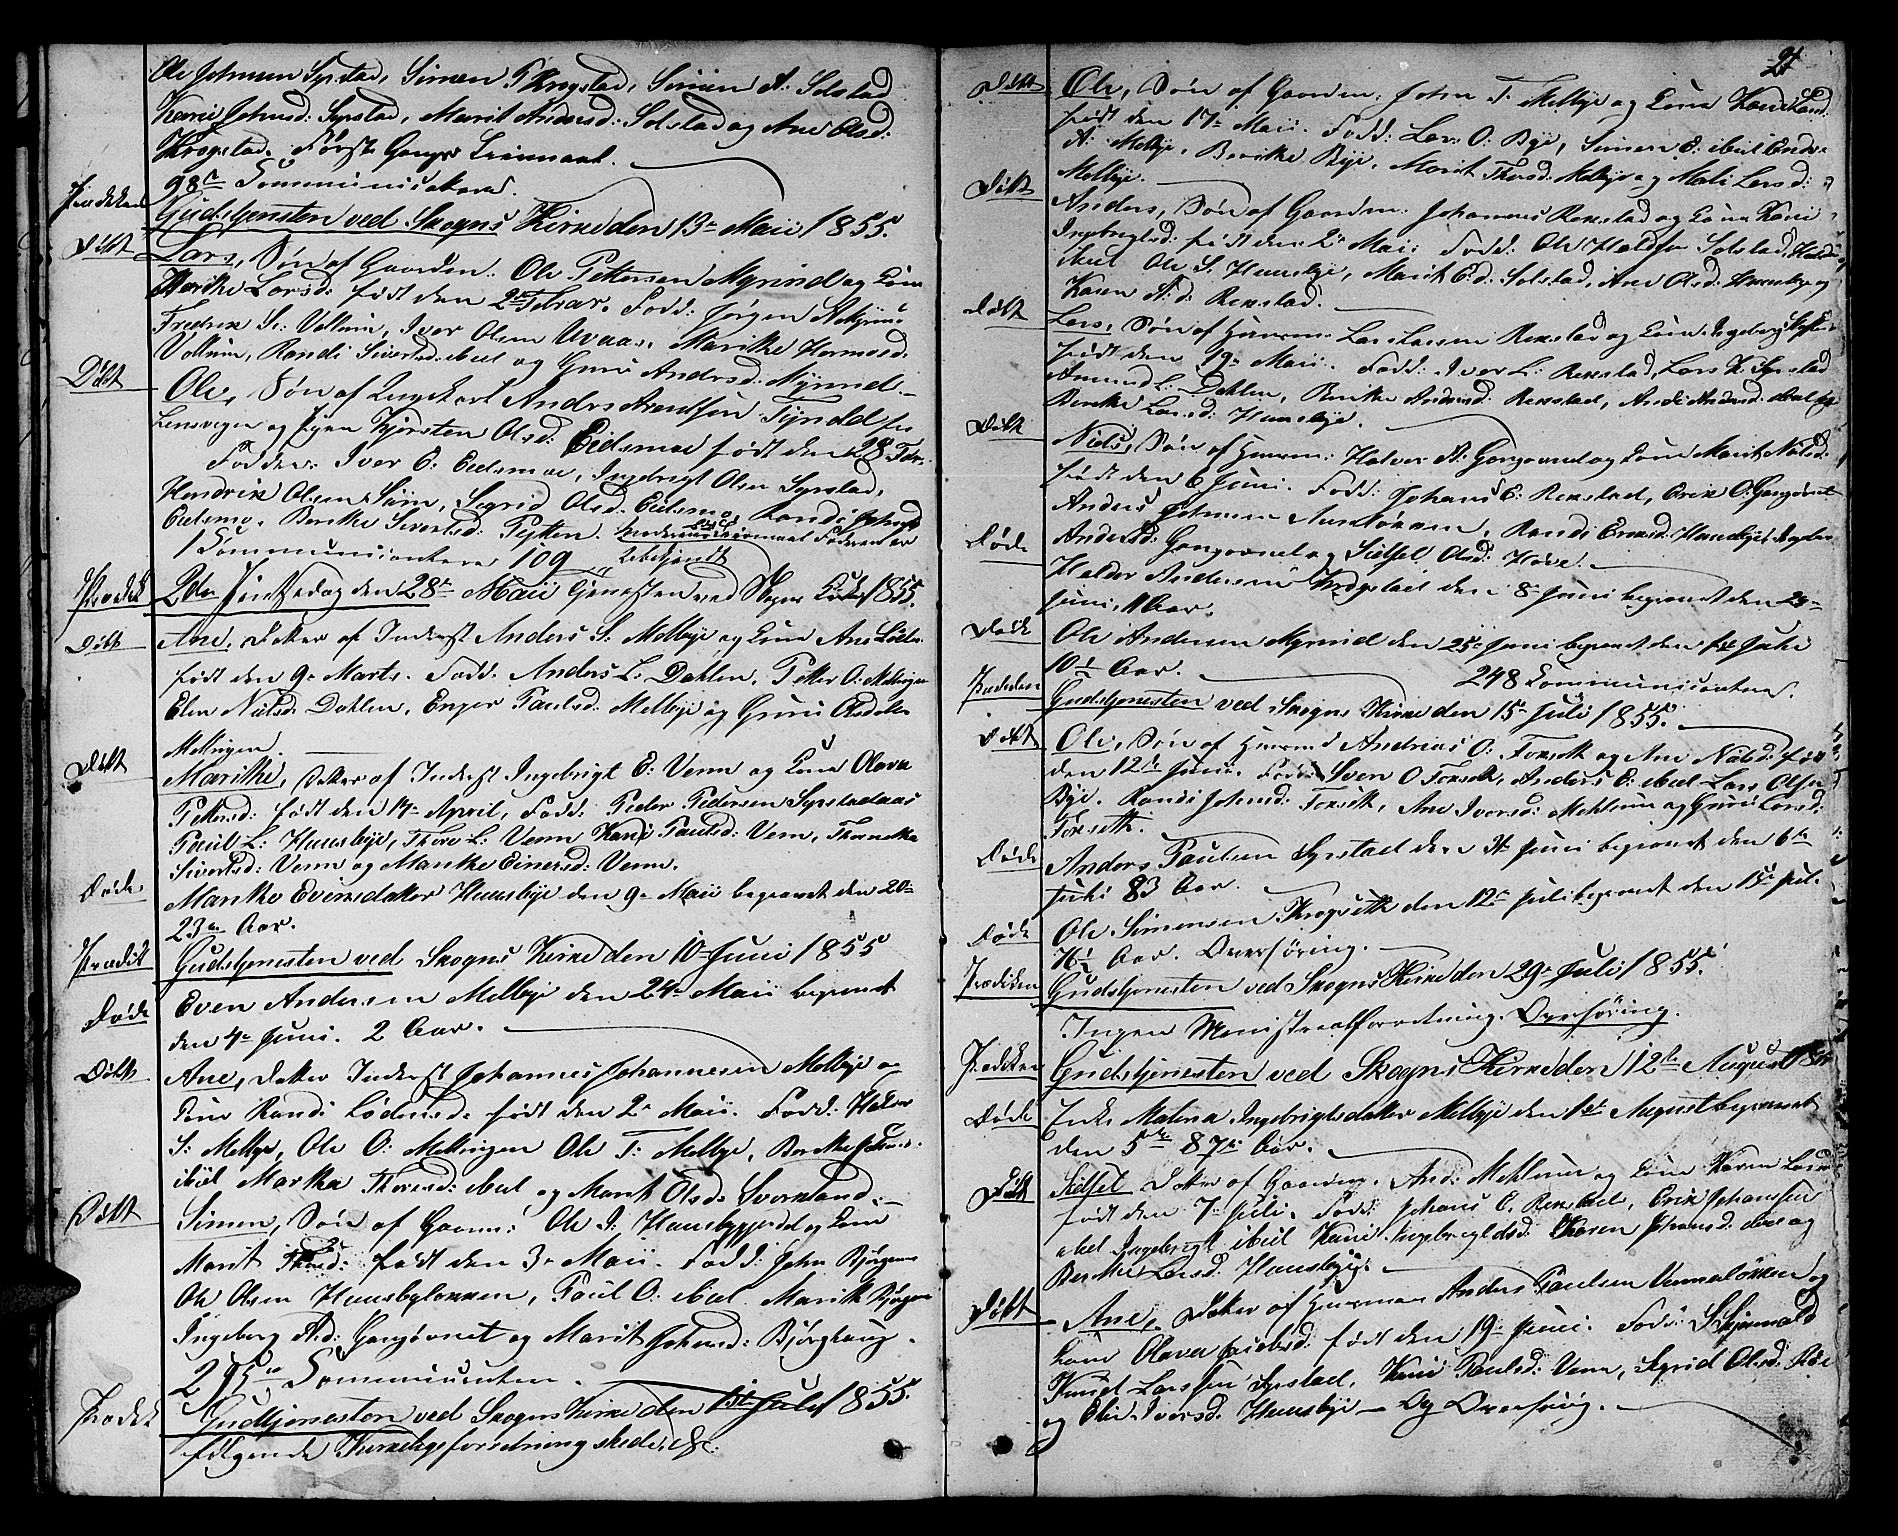 Ole Johnsen Syrstad, Simen P. Krogstad, Simen A: Solstad
Karie Johnsd: Syrstad, Marit Andersd: Solstad og Ane Olsd:
Krogstad. Første Gangs
98 Communicanter.
Prædiken Gudstjenesten ved Skogns Kirke den 13de Maii 1855.
Døbt Lars, Søn af Gaardm: Ole Pettersen Myrmd og Kone
Marithe Larsd: født den 2den Febuar. Fadd: Jørgen
Fredrik S: Vollum, Iver Olsen Uvaas, Marithe
Vollum, Randi Sivertsd: ibid og Guru Andersd: Myrmd.
Døbt Ole, Søn af Ungekarl Anders Arentsen Tyndal fra
og Pigen Kjersten Olsd: Eidsmoe født den 28 Febr.
Faddere: Iver O: Eidsmoe, Ingebrigt Olsen Syrstad,
Hendrik Olsen Siim, Sigrid Olsd: Eidsmo, Randi Johnsd
Eidsmo, Berithe Sivertsd: Fejten.
Communicantere 109
Prædik 2den Pintsedag den 28de Maii Gjenesten ved Skogns Kirke 1855.
Døbt Ane, Datter af Inderst Anders S. Melbye og Kone Ane
født den 9de Marts. Fadd: Anders L: Dahlen, Petter O: Mellingen
Elen Nielsd: Dahlen, Enger Paulsd: Melbye og Guru Olsdatter
Mellingen.
Døbt Marithe, Datter af Inderst Ingebrigt E: Venn og Kone Olava
Pettersd: født den 14de April, Fadd: Peder Pedersen Syrstadaas
Paul L: Huusbye, Thore L: Venn Kari Paulsd: Venn, Thorvika
Sivertsd: Venn og Marithe Einersd: Venn.
Døde Marithe Evensdatter Huusbye den 9de Maii begravet den 20de
23de Aar.
Prædik Gudstjenesten ved Skogns Kirke den 10de Juni 1855
Døde Even Andersen Melbye den 24de Maii begravet
den 4de Juni. 2 Aar.
Døbt Ane, Datter Inderst Johannes Johannesen Melbye og
Kone Randi født den 2de Maii. Fadd: Halvor
S: Melbye, Ole O: Mellingen Ole T: Melbye, Berithe
ibid Marthe Thoresd: ibid og Marit Olsd: Svorkland.
Døbt Simen, Søn af Gaardm: Ole I: Huusbygjerdet og Kone
Marit født den 3de Maii. Fadd: John Bjørgen
Ole Olsen Huusbyløkken, Paul O: ibid. Marith Bjørgen
Ingeborg A:d: Gangøvnet og Marit Johnsd: Bjørglaug.
295 Communicanter.
Prædik Gudstjenesten ved Skogns Kirke den 1ste Juli 1855.
følgende Kirkeligeforretning skede. &c.
21
Døbt Ole, Søn af Gaardm: John T. Melbye og Kone Kari Larsd.
født den 17de Maii. Fadd: Lars O: Bye, Simen E: ibid Ender
A: Melbye, Berithe Bye, Marit Thorsd: Melbye og Mali Larsd:
Melbye.
Døbt Anders, Søn af Gaardm: Johannes Rekstad og Kone Kari
Ingebrigtsd: født den 2de Maii Fadd: Ole Haldsen Solstad,
ibid Ole S. Huusbye, Marit E:d: Solstad, Ane Olsd: Huusbye og
Karen A:d: Rekstad.
Døbt Lars, Søn af Huusm: Lars Larsen Rekstad og Kone Ingeborg
født den 19de Maii. Fadd: Iver L: Rekstad, Lars K: Syrstad
Amund L: Dahlen, Berithe Andersd: Rekstad, Andersd: ibid og
Berithe Larsd: Huusbye.
Døbt Niels, Søn af Huusm: Halvor A: Gangøvnet og Kone Marit Nielsd:
født den 6 Juni. Fadd: Johans E: Rekstad, Erik O: Gangøvnet
Anders Johnsen Aunløkken, Randi Ersd: Huusbye, Ingebor
Andersd: Gangøvnet og Sidsel Olsd: Hove.
Døde Haldor Andersen Krogstad den 8de Juni begravet den 23de
Juni. 11 Aar.
Døde Ole Andersen Myrmd den 25de Juni begravet den 1ste Juli
10½ Aar. 248 Communicanter.
Prædiken Gudstjenesten ved Skogns Kirke den 15de Juli 1855.
Døbt Ole, Søn af Huusmd Andrias O: Forseth og Ane Nielsd: født
den 12te Juni. Fadd: Sven O Forseth, Anders O: ibid Lars Olsen
Bye. Randi Johnsd: Forseth, Ane Iversd: Mehlum og Guru Larsd:
Forseth.
Døde Anders Paulsen Syrstad den Juni begravet den 6te
Juli 83 Aar.
Døde Ole Simensen Krogseth den 12te Juli begravet den 15de Juli.
76½ Aar. Overføring.
Prædiken Gudstjenesten ved Skogns Kirke den 29de Juli 1855.
Ingen Ministrealforretning. Overføring.
Prædiken Gudstjenesten ved Skogns Kirke den 12te August 1855
Døde Enke Malena Ingebrigtsdatter Melbye den 1ste August begravet
den 5te 87½ Aar.
Døbt Sidsel Datter af Gaardm: And: Mehlum og Kone Karen Larsd
født den 7de Juli. Fadd: Johans E. Rekstad, Erik Johansen
ibid Ingebrigt ibid Kari Ingebrigtsd: Karen Johansd: ibid og
Berithe Larsd: Huusbye.
Døbt Ane, Datter af Huusman Anders Paulsen Vennaløkken og
Kone Olava født den 19de Juni. Fadd:
Knud Larssen Syrstad, Kari Paulsd: Venn, Sigrid Olsd:
og Elie Iversd. Huusbye — Og Overføring.